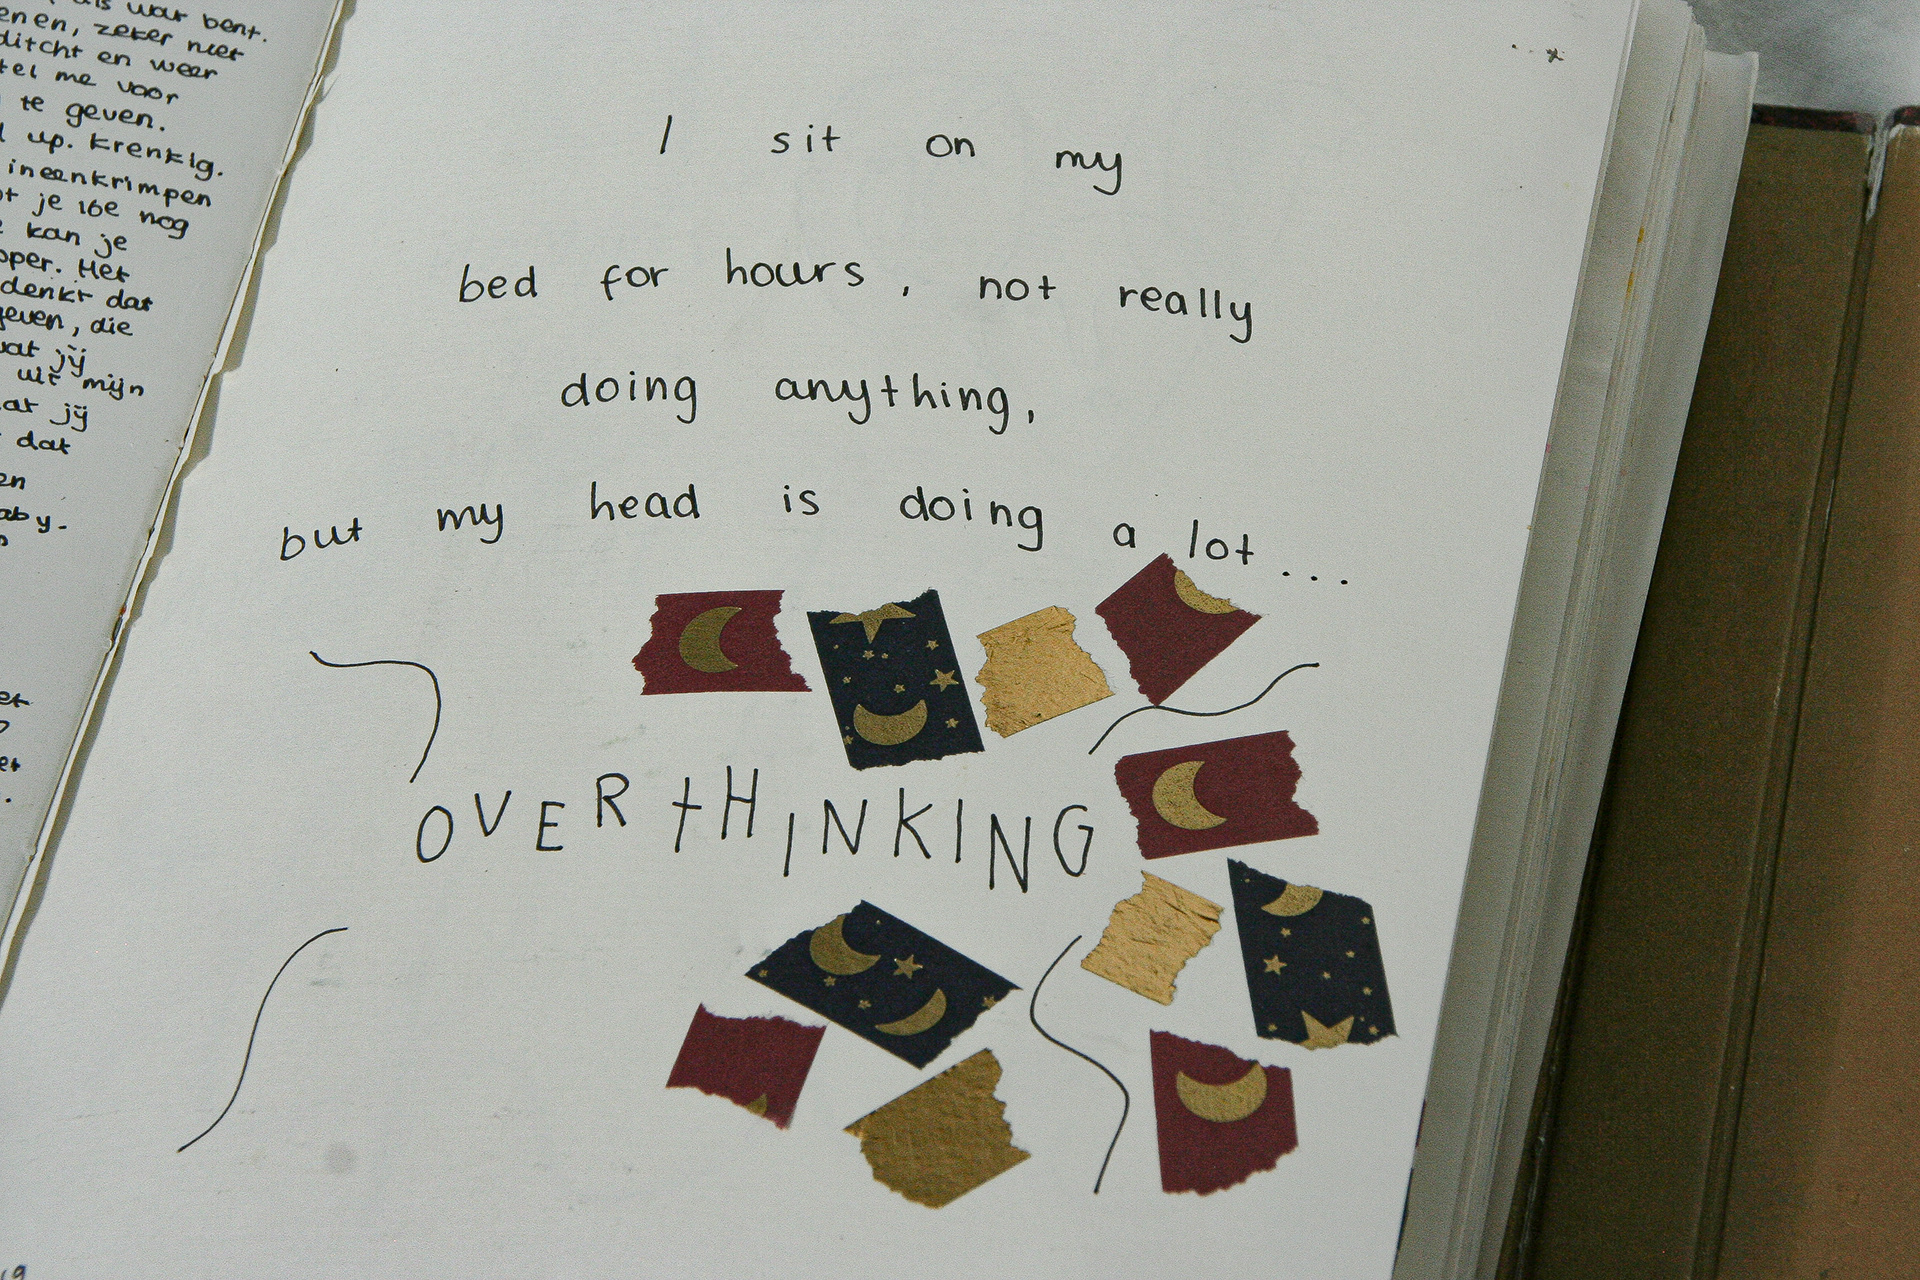 als war bent.
enen, zeker niet
ditcht en weer
tel me voor
te geven.
up. Krenkig.
ineenkrimpen
je 16e nog
kan je
Het
denkt dat
geven, die
wat jij
uit mijn
jij
dat
I sit on my
bed for hours, not really
doing anything,
but my head is doing a lot...
OVERtHINKING